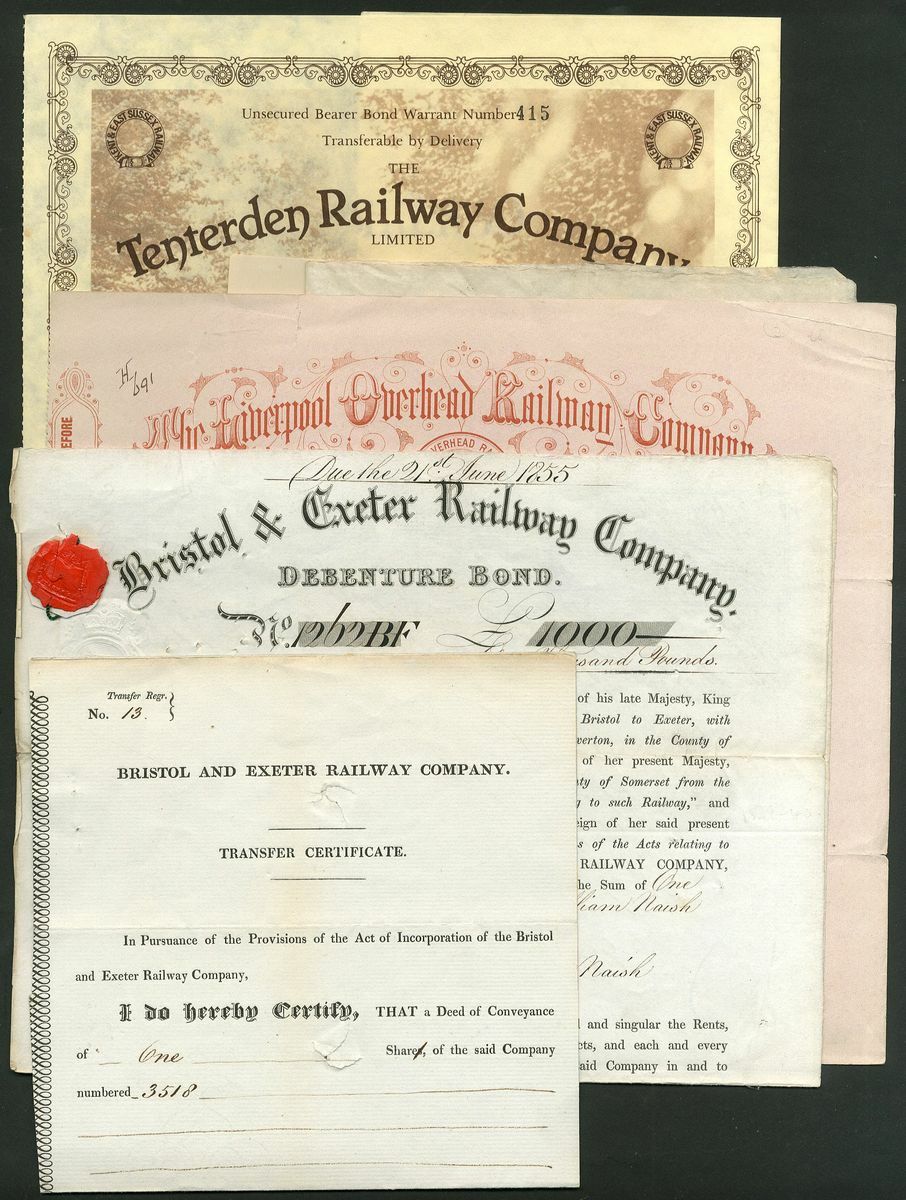 Unsecured Bearer Bond Warrant Number 415
KENT & EAST SUSSEX RAILWAY
KENT & EAST SUSSEX RAILWAY
Transferable by Delivery
THE
Tenterden Railway Company
LIMITED
H/691
The Liverpool Overhead Railway Company
VERHEAD RA
EFORE
(Due the 21st June) 1855
Bristol & Exeter Railway Company.
DEBENTURE BOND.
No. 1262 BF £ 1000
usand Pounds.
of his late Majesty, King
Bristol to Exeter, with
verton, in the County of
of her present Majesty,
ty of Somerset from the
g to such Railway," and
eign of her said present
s of the Acts relating to
RAILWAY COMPANY,
he Sum of One
lliam Naish
Naish
l and singular the Rents,
cts, and each and every
aid Company in and to
Transfer Regr.
No. 13.
BRISTOL AND EXETER RAILWAY COMPANY.
TRANSFER CERTIFICATE.
In Pursuance of the Provisions of the Act of Incorporation of the Bristol
and Exeter Railway Company,
I do hereby Certify, THAT a Deed of Conveyance
of One Share, of the said Company
numbered 3518